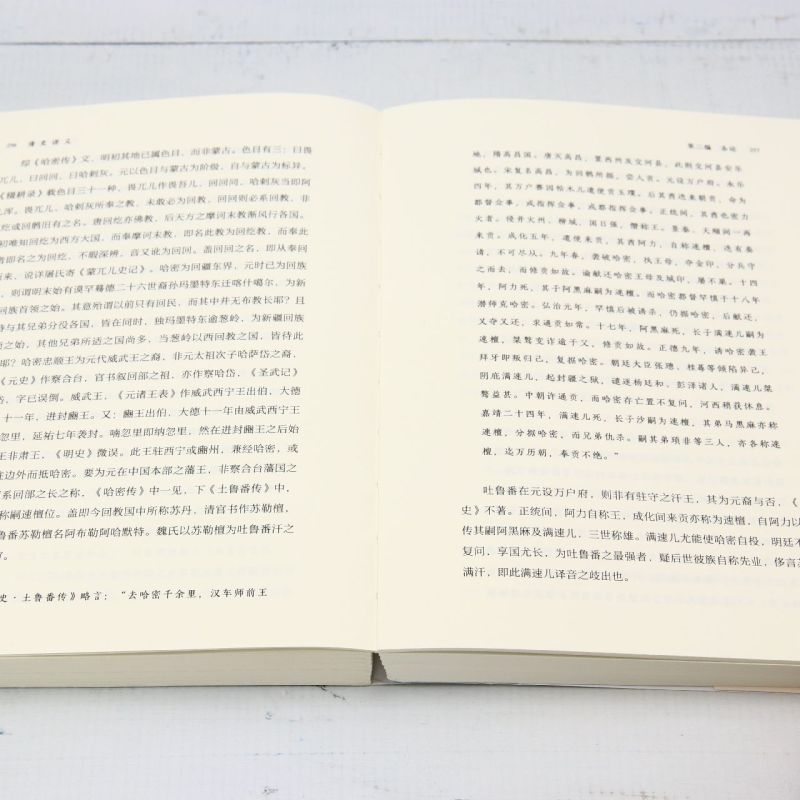 296 清史讲义
综《哈密传》文，明初其地已属色目，而非蒙古。色目有三：曰畏
兀儿，曰回回，曰哈剌灰。元以色目与蒙古为阶级，自与蒙古为标异。
《辍耕录》载色目三十一种，畏兀儿作畏吾儿，回回同，哈剌灰当即阿
儿浑。畏兀儿、哈剌灰所奉之教，未敢必为回教，回回则必系回教，非
纥或回鹘旧有之名。唐回纥亦佛教，后天方之摩诃末教渐风行各国。
初唯知回纥为西方大国，而奉摩诃末教，即名此教为回纥教，而奉此
者即名之为回纥，不暇深辨，音又讹为回回。盖回回之名，即从奉回
而来，说详屠氏寄《蒙兀儿史记》。哈密为回疆东界，元时已为回族
，则谓明末始有谟罕蓦德二十六世裔孙玛墨特东迁喀什噶尔，为新
回族首领之始。其意殆谓以前只有回民，而其中并无布教长耶？且
特与其兄弟分役各国，皆在同时，独玛墨特东逾葱岭，为新疆回族
之始，其他兄弟所适之国尚多，当葱岭以西回教之国，皆待此
耶？哈密忠顺王为元代威武王之裔，非元太祖次子哈萨岱之裔，
《元史》作察合台，官书叙回部之祖，亦作察哈岱，《圣武记》
，字已误倒。威武王，《元诸王表》作威武西宁王出伯，大德
十一年，进封豳王。又：豳王出伯，大德十一年由威武西宁王
忽里，延祐七年袭封。喃忽里即纳忽里，然在进封豳王之后始
王非肃王，《明史》微误。此王驻西宁或豳州，兼经哈密，或
驻边外而抵哈密。要为元在中国本部之藩王，非察合台藩国之
系回部之长之称，《哈密传》中一见，下《土鲁番传》中，
称嗣速檀位。盖即今回教国中所称苏丹，清官书作苏勒檀，
鲁番苏勒檀名阿布勒阿哈默特。魏氏以苏勒檀为吐鲁番汗之
史·土鲁番传》略言：“去哈密千余里，汉车师前王
第二编 各论 257
地，隋高昌国。唐灭高昌，置西州及交河县，此则交河县安乐
城也。宋复名高昌，为回鹘所据，尝入贡。元设万户府。永乐
四年，其万户赛因帖木儿遣使贡玉璞。后其酋迭来朝贡，或命为
都督佥事，或指挥佥事，或都指挥佥事。正统间，其酋也密力
火者。侵并火州、柳城，国日强，僭称王。景泰、天顺间一再
来贡。成化五年，遣使来贡，其酋阿力，自称速檀，迭有奏
请，不可尽从。九年春，袭破哈密，执王母，夺金印，分兵守
之而去，而修贡如故。谕献还哈密王母及城印，屡不果。十四
年，阿力死，其子阿黑麻为速檀。而哈密都督罕慎于十八年
潜师克哈密。弘治元年，罕慎后被诱杀，仍据哈密，后献还，
又夺又还，求通贡如常。十七年，阿黑麻死，长子满速儿嗣为
速檀，桀骜变诈逾于父，修贡如故。正德九年，诱哈密袭王
拜牙即叛归己，复据哈密。朝廷大臣张璁、桂萼等倾陷异己，
阴庇满速儿，起封疆之狱，谴逐杨廷和、彭泽诸人，满速儿桀
骜益甚。中朝许通贡，而哈密存亡置不复问，河西稍获休息。
嘉靖二十四年，满速儿死，长子沙嗣为速檀，其弟马黑麻亦称
速檀，分据哈密，而兄弟仇杀。嗣其弟琐非等三人，亦各称速
檀，迄万历朝，奉贡不绝。”
吐鲁番在元设万户府，则非有驻守之汗王，其为元裔与否，《
史》不著。正统间，阿力自称王，成化间来贡亦称为速檀，自阿力以
传其嗣阿黑麻及满速儿，三世称雄。满速儿尤能使哈密自投，明廷不
复问，享国尤长，为吐鲁番之最强者，疑后世彼族自称先业，侈言
满汗，即此满速儿译音之歧出也。